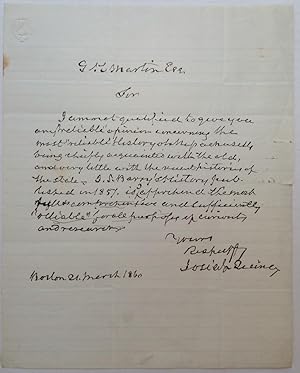 G. H. Martin Esq.
Sir
I am not qualified to give you
any reliable opinion concerning the
most "reliable" History of Massachusetts,
being chiefly acquainted with the old,
and very little with the recent histories of
the state. Barry's History pub-
lished in 1857. is, I apprehend the most
comprehensive and sufficiently
"reliable" for all purposes of curiosity
and research.
Yours
respectfy
Josiah Quincy
Boston 21. March 1860